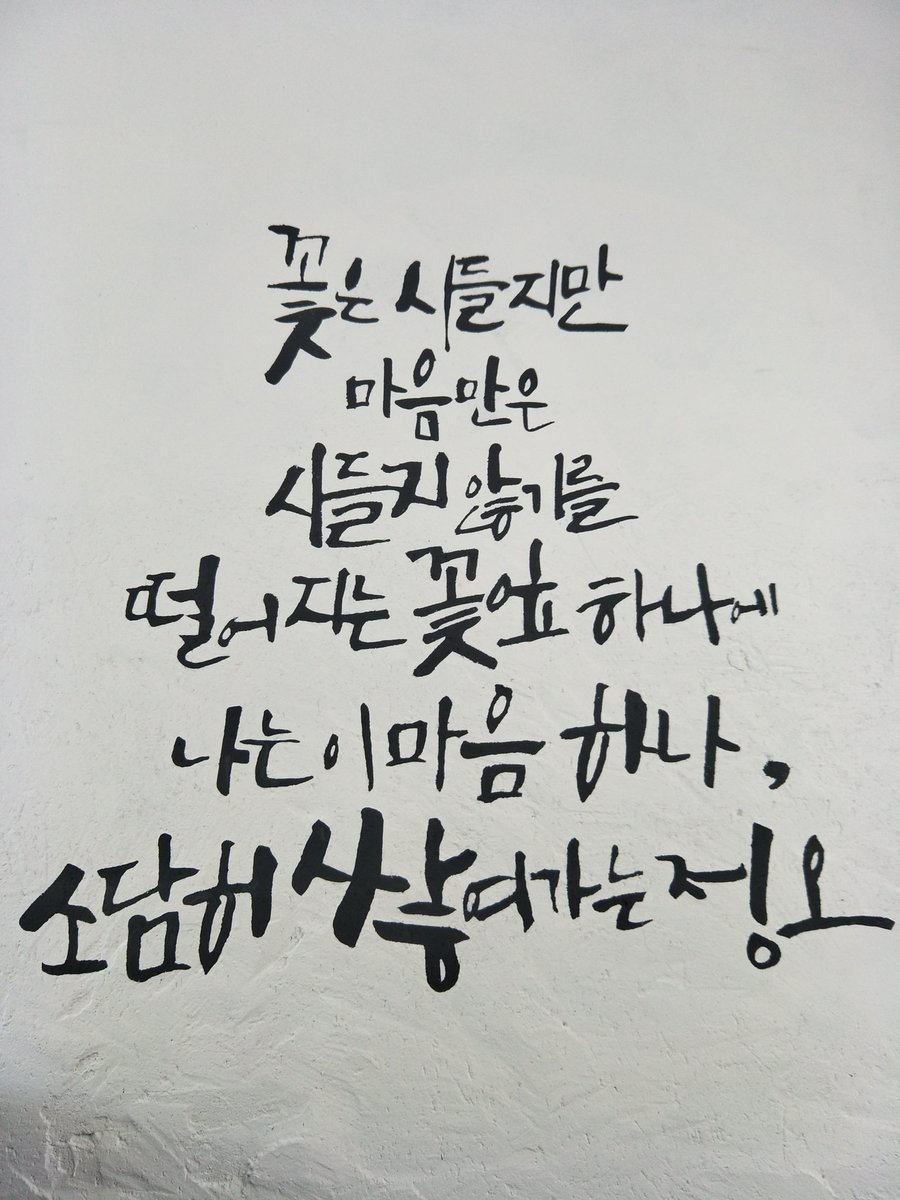 꽃은 시들지만
마음만은
시들지 않기를
떨어지는 꽃잎 하나에
나는 이 마음 하나,
소담히 쌓여가는 정오